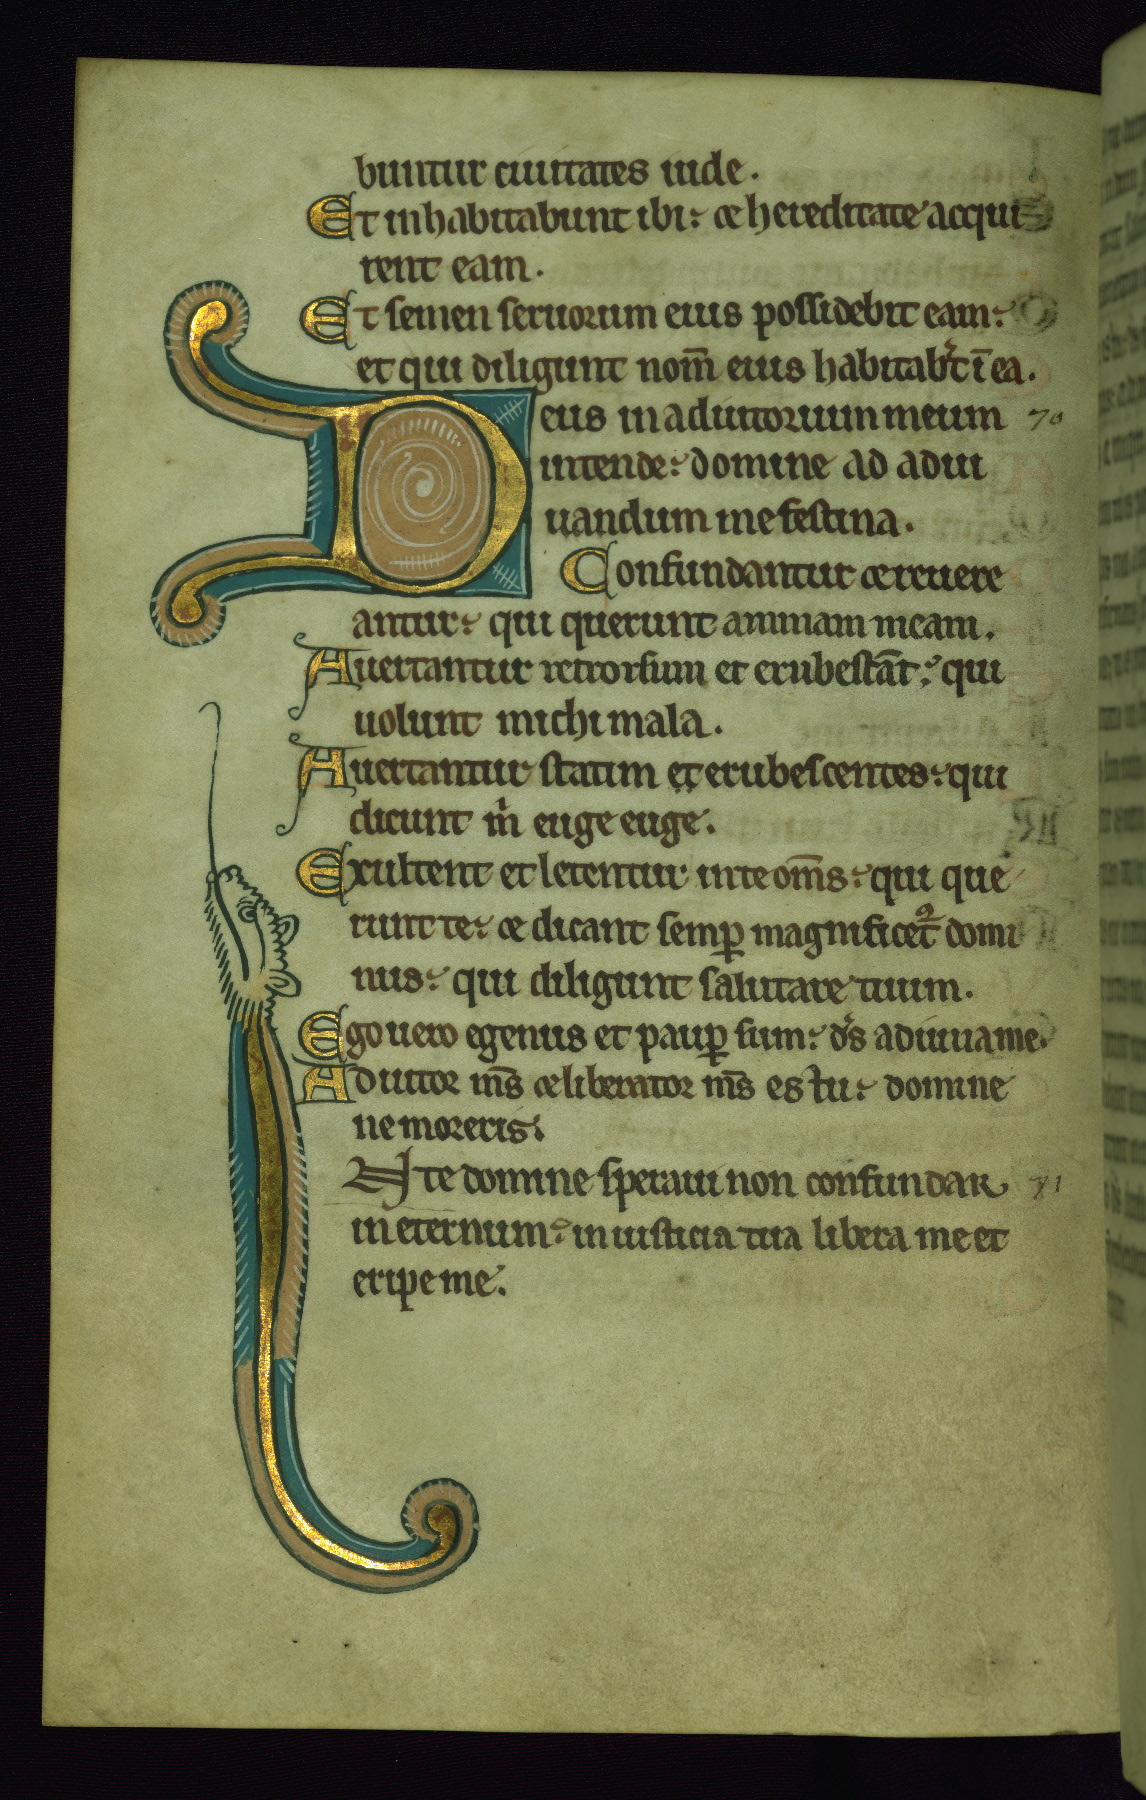 buntur ciuitates iude.
Et inhabitabunt ibi: ⁊ hereditate acqui
rent eam.
Et semen seruorum eius possidebit eam:
et qui diligunt nom̄ eius habitab̾t ī ea.
Deus in adiutorium meum 70
intende: domine ad adiu
uandum me festina.
Confundantur ⁊ reuere
antur: qui querunt animam meam.
Auertantur retrorsum et erubescāt: qui
uolunt michi mala.
Auertantur statim et erubescentes: qui
dicunt m̍ euge euge.
Exultent et letentur in te om̄s: qui que
runt te: ⁊ dicant semꝑ magnificet̄᷒ domi
nus: qui diligunt salutare tuum.
Ego uero egenus et pauꝑ sum: d̾s adiuua me.
Adiutor m̄s ⁊ liberator m̄s es tu: domine
ne moreris.
In te domine speraui non confundar 71
in eternum: in iusticia tua libera me et
eripe me.